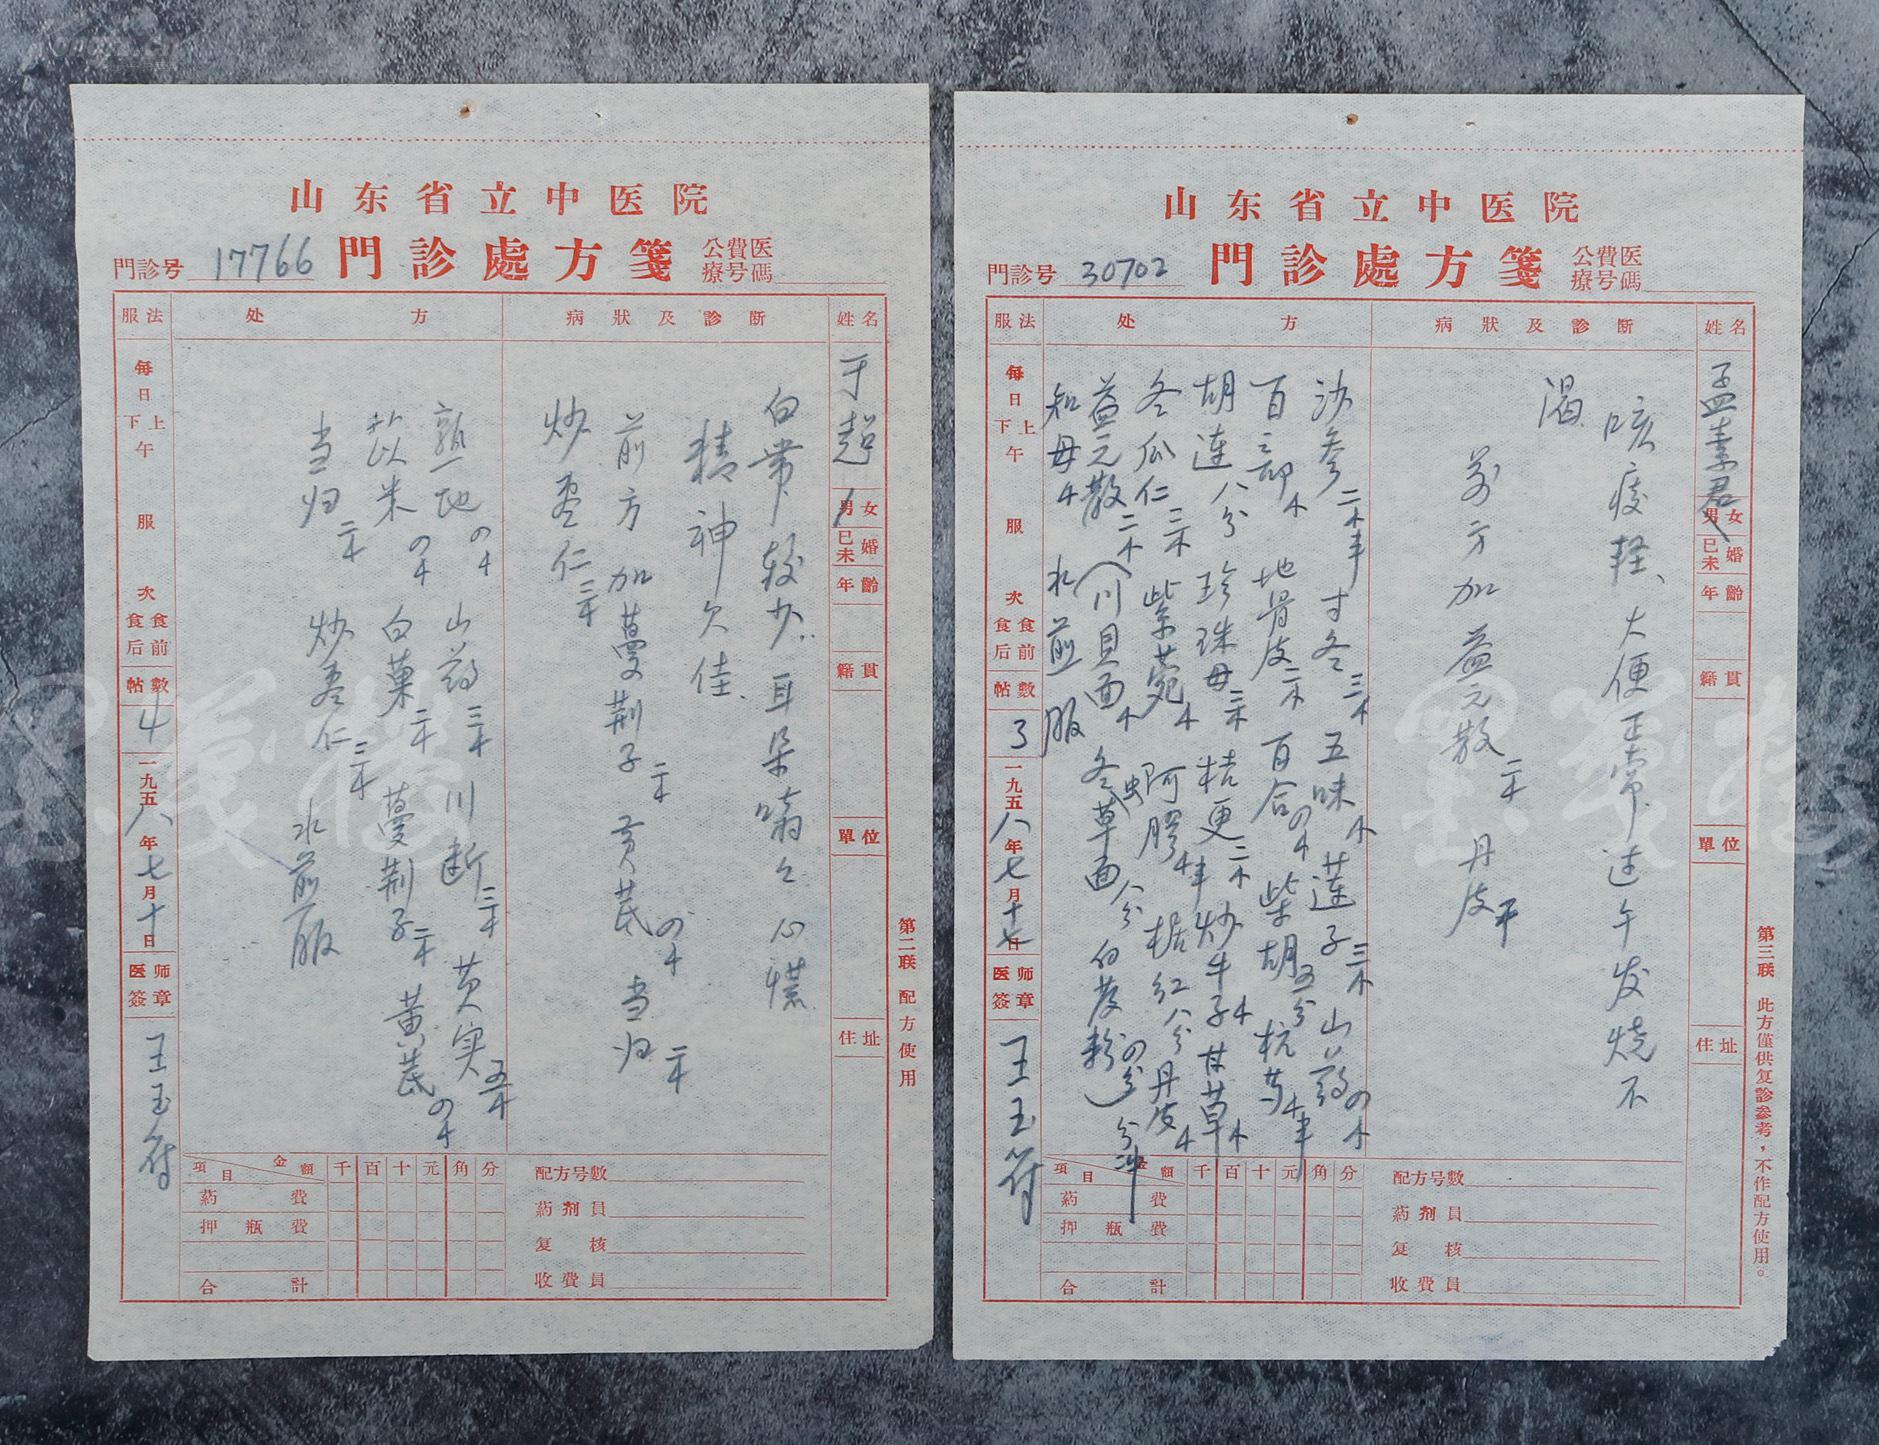 山东省立中医院
門診号 17766 門診處方箋 公費医療号碼
姓名
于超
男女
已未婚
年齡
籍貫
單位
住址
病狀及診断
白带较少，耳朵嗡々心慌
精神欠佳、
前方加蔓荆子二十 黄芪四十 当归二十
炒枣仁三十
处方
熟地四十 山药三十 川断三十 芡实五十
苡米四十 白菓二十 蔓荆子二十 黄芪四十
当归二十 炒枣仁三十 水煎服
服法
每日上下午服 次食前食后
帖數
4
一九五八年七月十日
医师簽章
王玉符
項目 金額 千 百 十 元 角 分
葯費
押瓶費
合計
配方号數
葯剂員
复核
收費員
第二联 配方使用
山东省立中医院
門診号 30702 門診處方箋 公費医療号碼
姓名
孟素君
男女
已未婚
年齡
籍貫
單位
住址
病狀及診断
咳痰轻、大便正常过午发烧不
渴
前方加益元散二十 丹皮
处方
沙参 寸冬三十 五味 莲子三十 山药四十
百部 地骨皮二十 百合四十 柴胡五分 杭芍
胡连八分 珍珠母三十 桔更二十 炒牛子 甘草
冬瓜仁三十 紫菀 阿胶 桔红八分 丹皮
益元散二十 川貝面 冬虫草面八分 白芨粉四分 分冲
知母 水煎服
服法
每日上下午服 次食前食后
帖數
3
一九五八年七月十七日
医师簽章
王玉符
項目 金額 千 百 十 元 角 分
葯費
押瓶費
合計
配方号數
葯剂員
复核
收費員
第三联 此方僅供复診参考，不作配方使用。